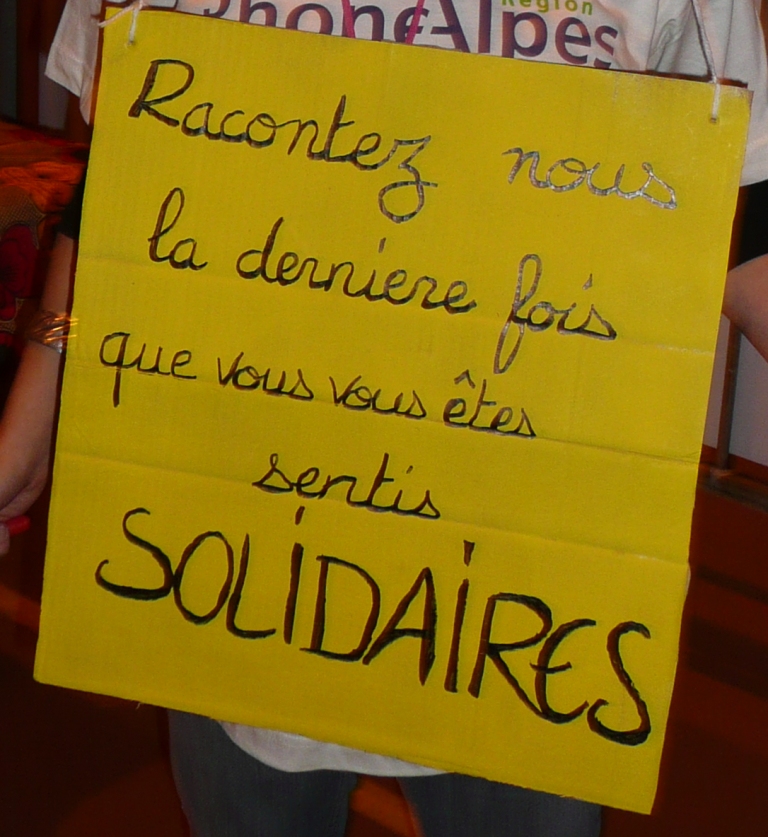 Région
RhôneAlpes
Racontez nous
la derniere fois
que vous vous êtes
sentis
SOLIDAIRES